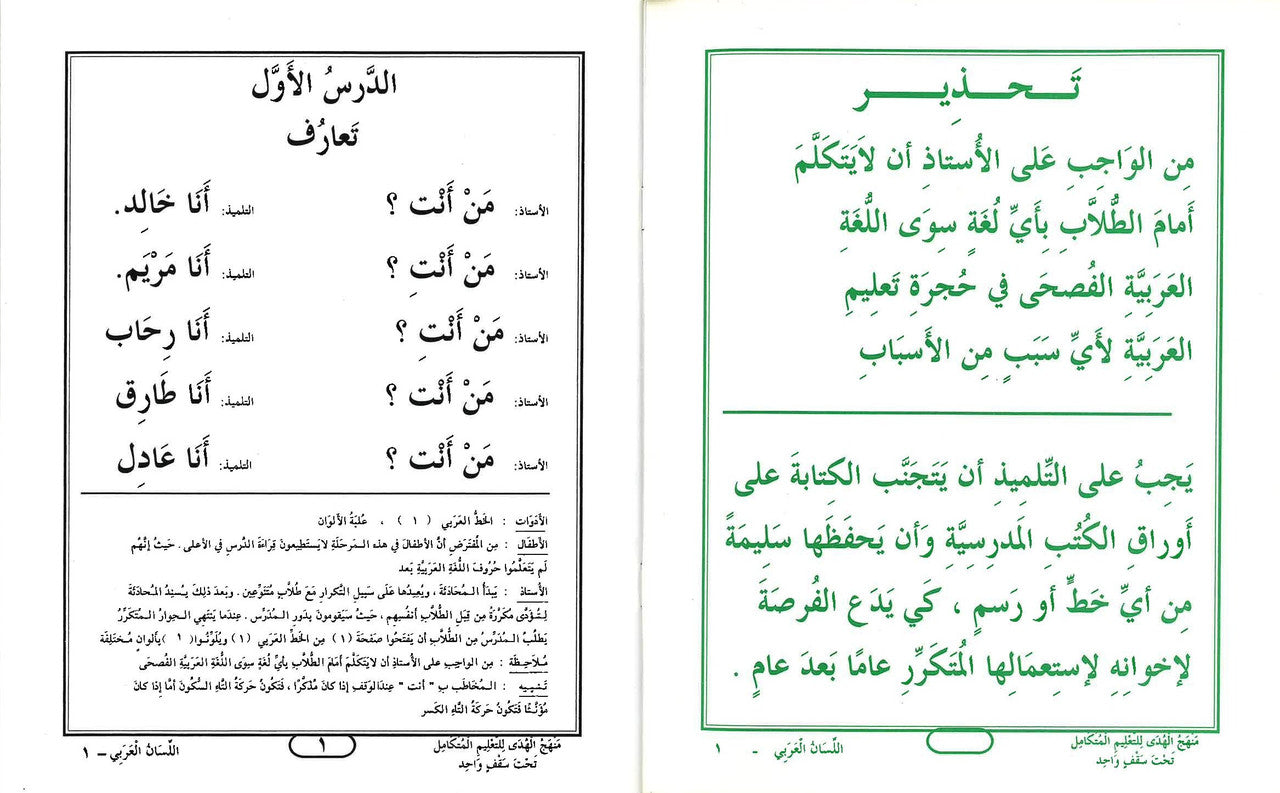 تَـــحـــذِيـــــر
مِن الوَاجِبِ عَلى الأُستاذِ أن لاَيَتَكَلَّمَ
أَمامَ الطُّلاَّبِ بِأَيِّ لُغَةٍ سِوَى اللُّغَةِ
العَرَبِيَّةِ الفُصحَى في حُجرَةِ تَعلِيمِ
العَرَبِيَّةِ لأَيِّ سَبَبٍ مِن الأَسبَابِ
يَجِبُ على التِّلمِيذِ أن يَتَجَنَّب الكِتابةَ على
أَوراقِ الكُتُبِ المَدرِسِيَّةِ وَأن يَحفَظَها سَلِيمَةً
مِن أيِّ خَطٍّ أو رَسمٍ ، كَي يَدَع الفُرصَةَ
لإخوانِهِ لإستِعمَالِها المُتَكَرِّرِ عامًا بَعدَ عامٍ .
مَنهَجُ الْهُدَى لِلتَّعْلِيمِ الْمُتكَامِل
تَحْتَ سَقْفٍ وَاحِد
اللِّسَانُ الْعَرَبِي - ١
الدَّرسُ الأَوَّل
تَعارُف
الأستاذ: مَنْ أَنْت ؟ التلميذ: أَنَا خَالِد.
الأستاذ: مَنْ أَنْتِ ؟ التلميذ: أَنَا مَرْيَم.
الأستاذ: مَنْ أَنْتِ ؟ التلميذ: أَنَا رِحَاب
الأستاذ: مَنْ أَنْت ؟ التلميذ: أَنَا طَارِق
الأستاذ: مَنْ أَنْت ؟ التلميذ: أَنَا عَادِل
الأَدَوَات : الخَطُّ العَرَبي ( ١ ) ، عُلبَةُ الأَلوَان
الأَطفَال : مِن المُفتَرَضِ أنَّ الأطفالَ في هذه المَرحَلَةِ لايَستَطِيعونَ قِرَاءَةَ الدَّرسِ في الأعلى . حَيثُ إنَّهُم
لَم يَتَعَلَّمُوا حُرُوفَ اللُّغَةِ العَرَبِيَّةِ بَعد
الأُستاذ : يَبدَأُ المُحَادَثَةَ ، ويُعِيدُها عَلَى سَبِيلِ التَّكرارِ مَعَ طُلاَّبٍ مُتَنَوِّعِين . وبَعدَ ذلِكَ يُسنِدُ المُحادَثَةَ
لِتُؤَدَّى مُكَرَّرَةً مِن قِبَلِ الطُّلاَّبِ أنفُسِهِم ، حَيثُ سَيَقُومونَ بِدَورِ المُدَرِّس . عِندَما يَنتَهي الحِوارُ المُتَكَرِّرُ
يَطلُبُ المُدَرِّسُ مِن الطُّلاَّبِ أن يَفتَحُوا صَفحَةَ (١) مِن الخَطِّ العَرَبي (١) ويُلَوِّنُوا( ١ )بِألوانٍ مُختَلِفَة
مُلاَحِظَة : مِن الواجِبِ على الأُستاذِ أن لايَتَكَلَّمَ أمَامَ الطُّلاَّبِ بِأيِّ لُغَةٍ سِوَى اللُّغَةِ العَرَبِيَّةِ الفُصحَى
تَنبِيه : المُخَاطَب بِـ " أنت " عِندَالوَقفِ إذا كانَ مُذَكَّرًا ، فَتَكُونُ حَرَكَةُ التَّاءِ السُّكُونَ أمَّا إذا كانَ
مُؤَنَّثًا فَتَكُونُ حَرَكَةُ التَّاءِ الكَسر
مَنهَجُ الْهُدَى لِلتَّعْلِيمِ الْمُتكَامِل
تَحْتَ سَقْفٍ وَاحِد
١
اللِّسَانُ الْعَرَبِي – ١